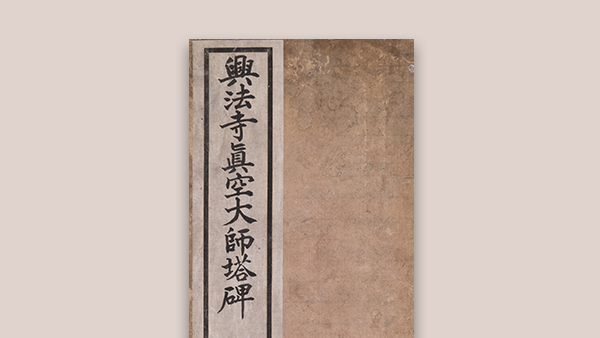 興法寺眞空大師塔碑